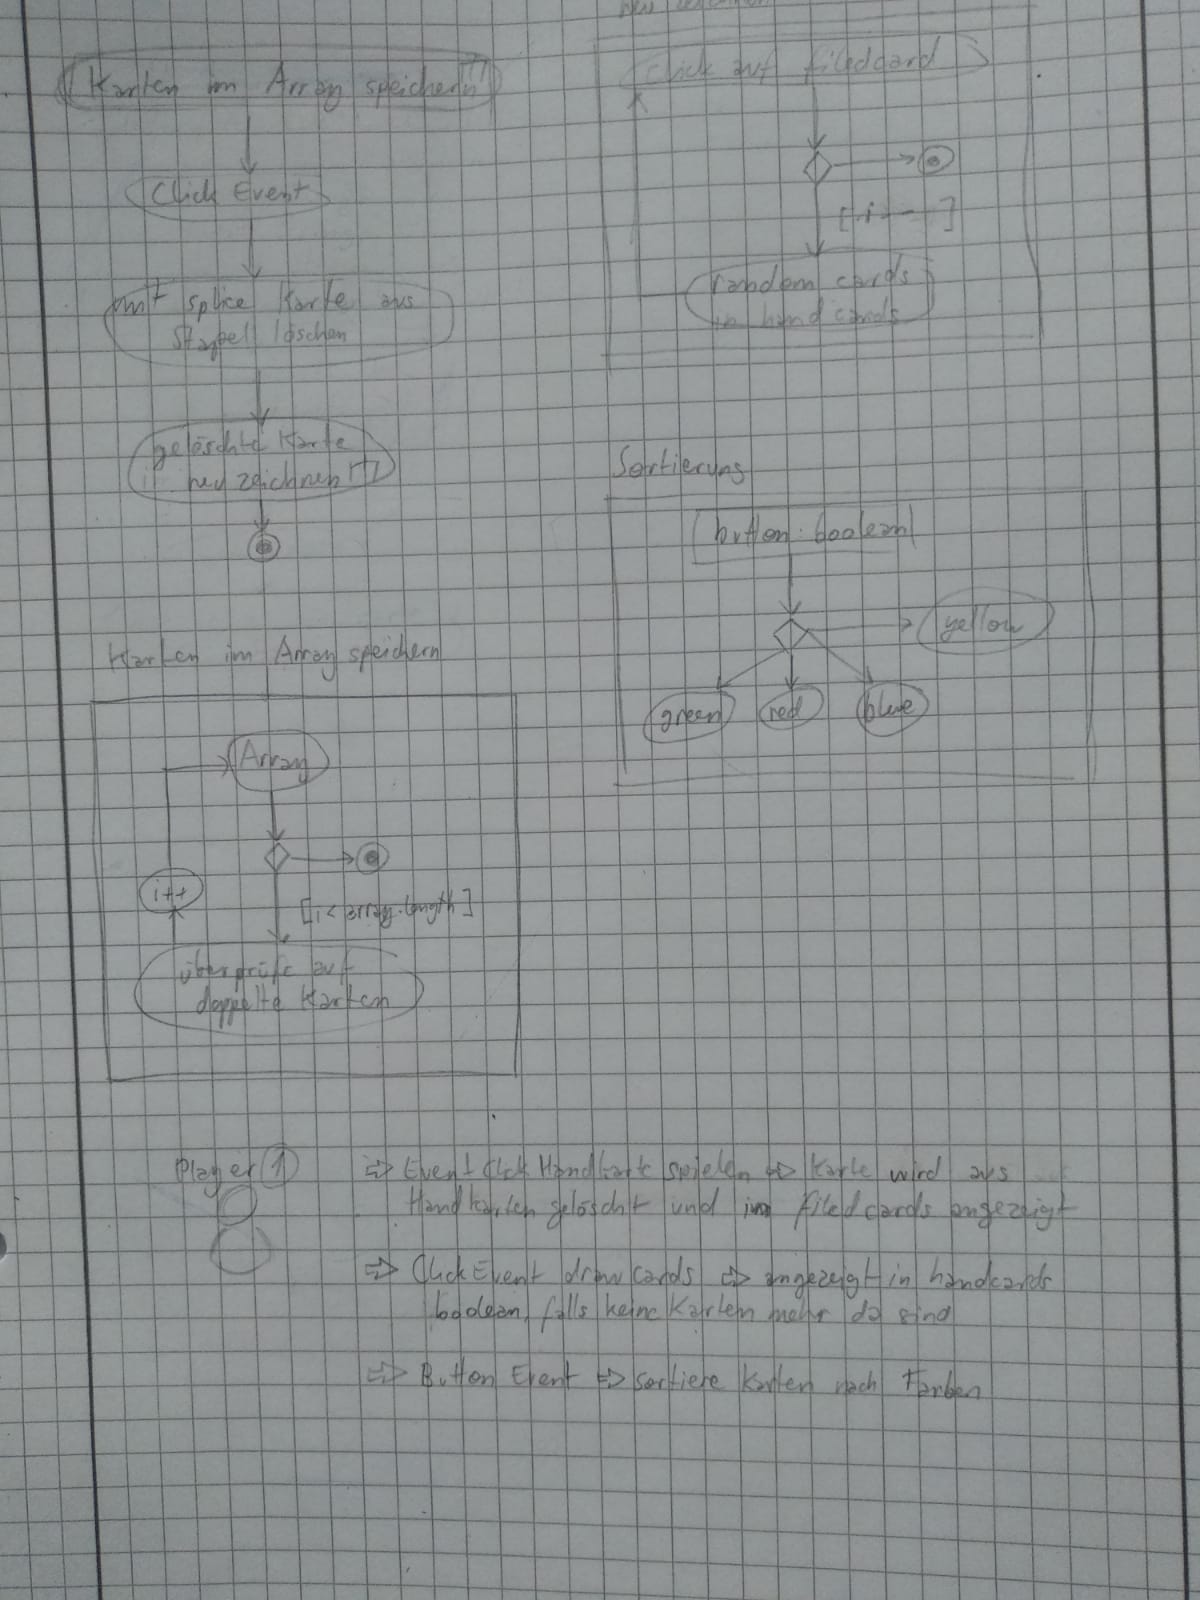 Karten im Array speichern
Click Event
mit splice Karte aus
Stapel löschen
gelöschte Karte
neu zeichnen
Karten im Array speichern
Array
i++
[i < array.length]
überprüfe auf
doppelte Karten
Click auf filedcard
[i--]
random cards
in hand cards
Sortierung
button: boolean
yellow
green
red
blue
Player 1
⇨ Event Click Handkarte spielen ⇨ Karte wird aus
Handkarten gelöscht und in filedcards angezeigt
⇨ Click Event draw cards ⇨ angezeigt in handcards
boolean, falls keine Karten mehr da sind
⇨ Button Event ⇨ sortiere Karten nach Farben